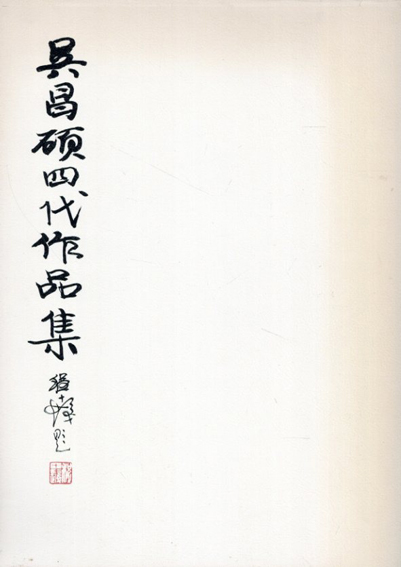 吴昌硕四代作品集